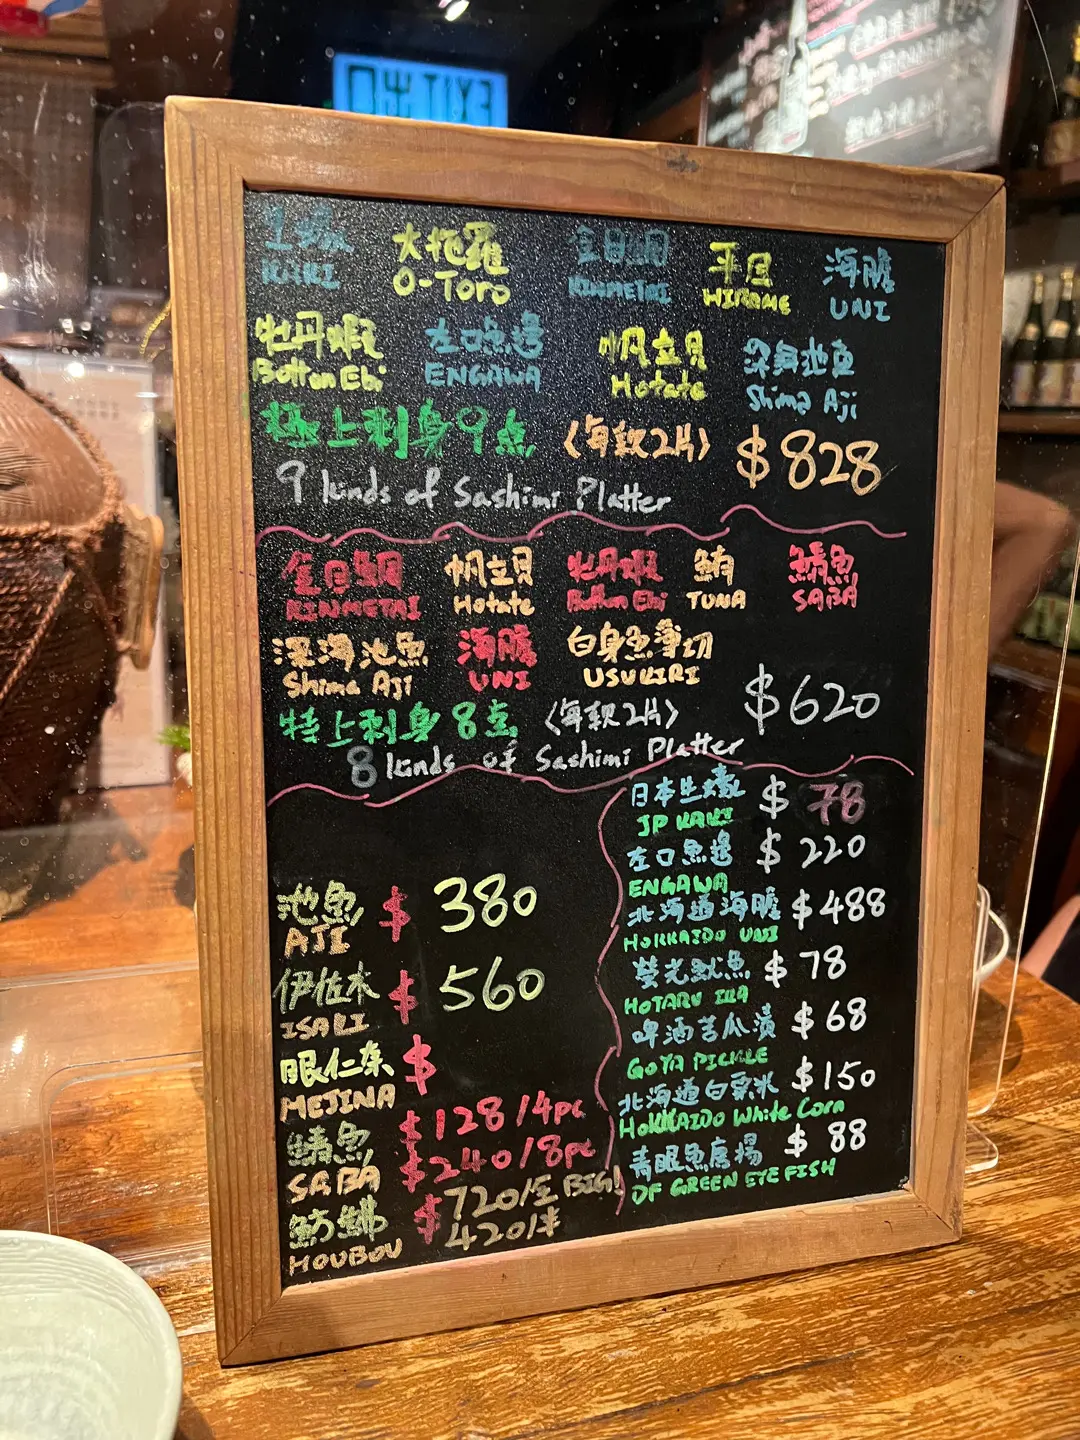 EXIT 出口
大拖羅
O-Toro
金目鯛
KINMETAI
平目
HIRAME
海膽
UNI
牡丹蝦
Bottan Ebi
左口魚邊
ENGAWA
帆立貝
Hotate
深海池魚
Shima Aji
極上刺身9点 〈每款2片〉 $828
9 kinds of Sashimi Platter
金目鯛
KINMETAI
帆立貝
Hotate
牡丹蝦
Bottan Ebi
鮪
TUNA
鯖魚
SABA
深海池魚
Shima Aji
海膽
UNI
白身魚薄切
USUKIRI
特上刺身8点 〈每款2片〉 $620
8 kinds of Sashimi Platter
池魚 $380
AJI
伊佐木 $560
ISAKI
眼仁奈 $
MEJINA
鯖魚 $128/4pc
SABA $240/8pc
魴鮄 $720/全 BIG!
HOUBOU 420/半
日本生蠔 $78
JP KAKI
左口魚邊 $220
ENGAWA
北海道海膽 $488
HOKKAIDO UNI
螢光魷魚 $78
HOTARU IKA
啤酒苦瓜漬 $68
GOYA PICKLE
北海道白粟米 $150
HOKKAIDO White Corn
青眼魚唐揚 $88
DF GREEN EYE FISH